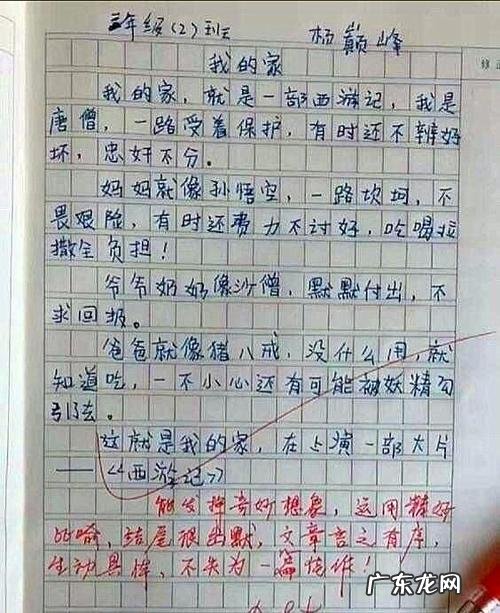 三年级(2)班 杨巅峰
我的家
我的家，就是一部西游记，我是
唐僧，一路受着保护，有时还不辨好
坏，忠奸不分。
妈妈就像孙悟空，一路坎坷，不
畏艰险，有时还费力不讨好，吃喝拉
撒全负担！
爷爷奶奶像沙僧，默默付出，不
求回报。
爸爸就像猪八戒，没什么用，就
知道吃，一不小心还有可能被妖精勾
引去。
这就是我的家，在上演一部大片
——《西游记》
能发挥奇妙想象，运用精妙
比喻，结尾很幽默，文章言之有序，
生动具体，不失为一篇佳作！
广东龙网